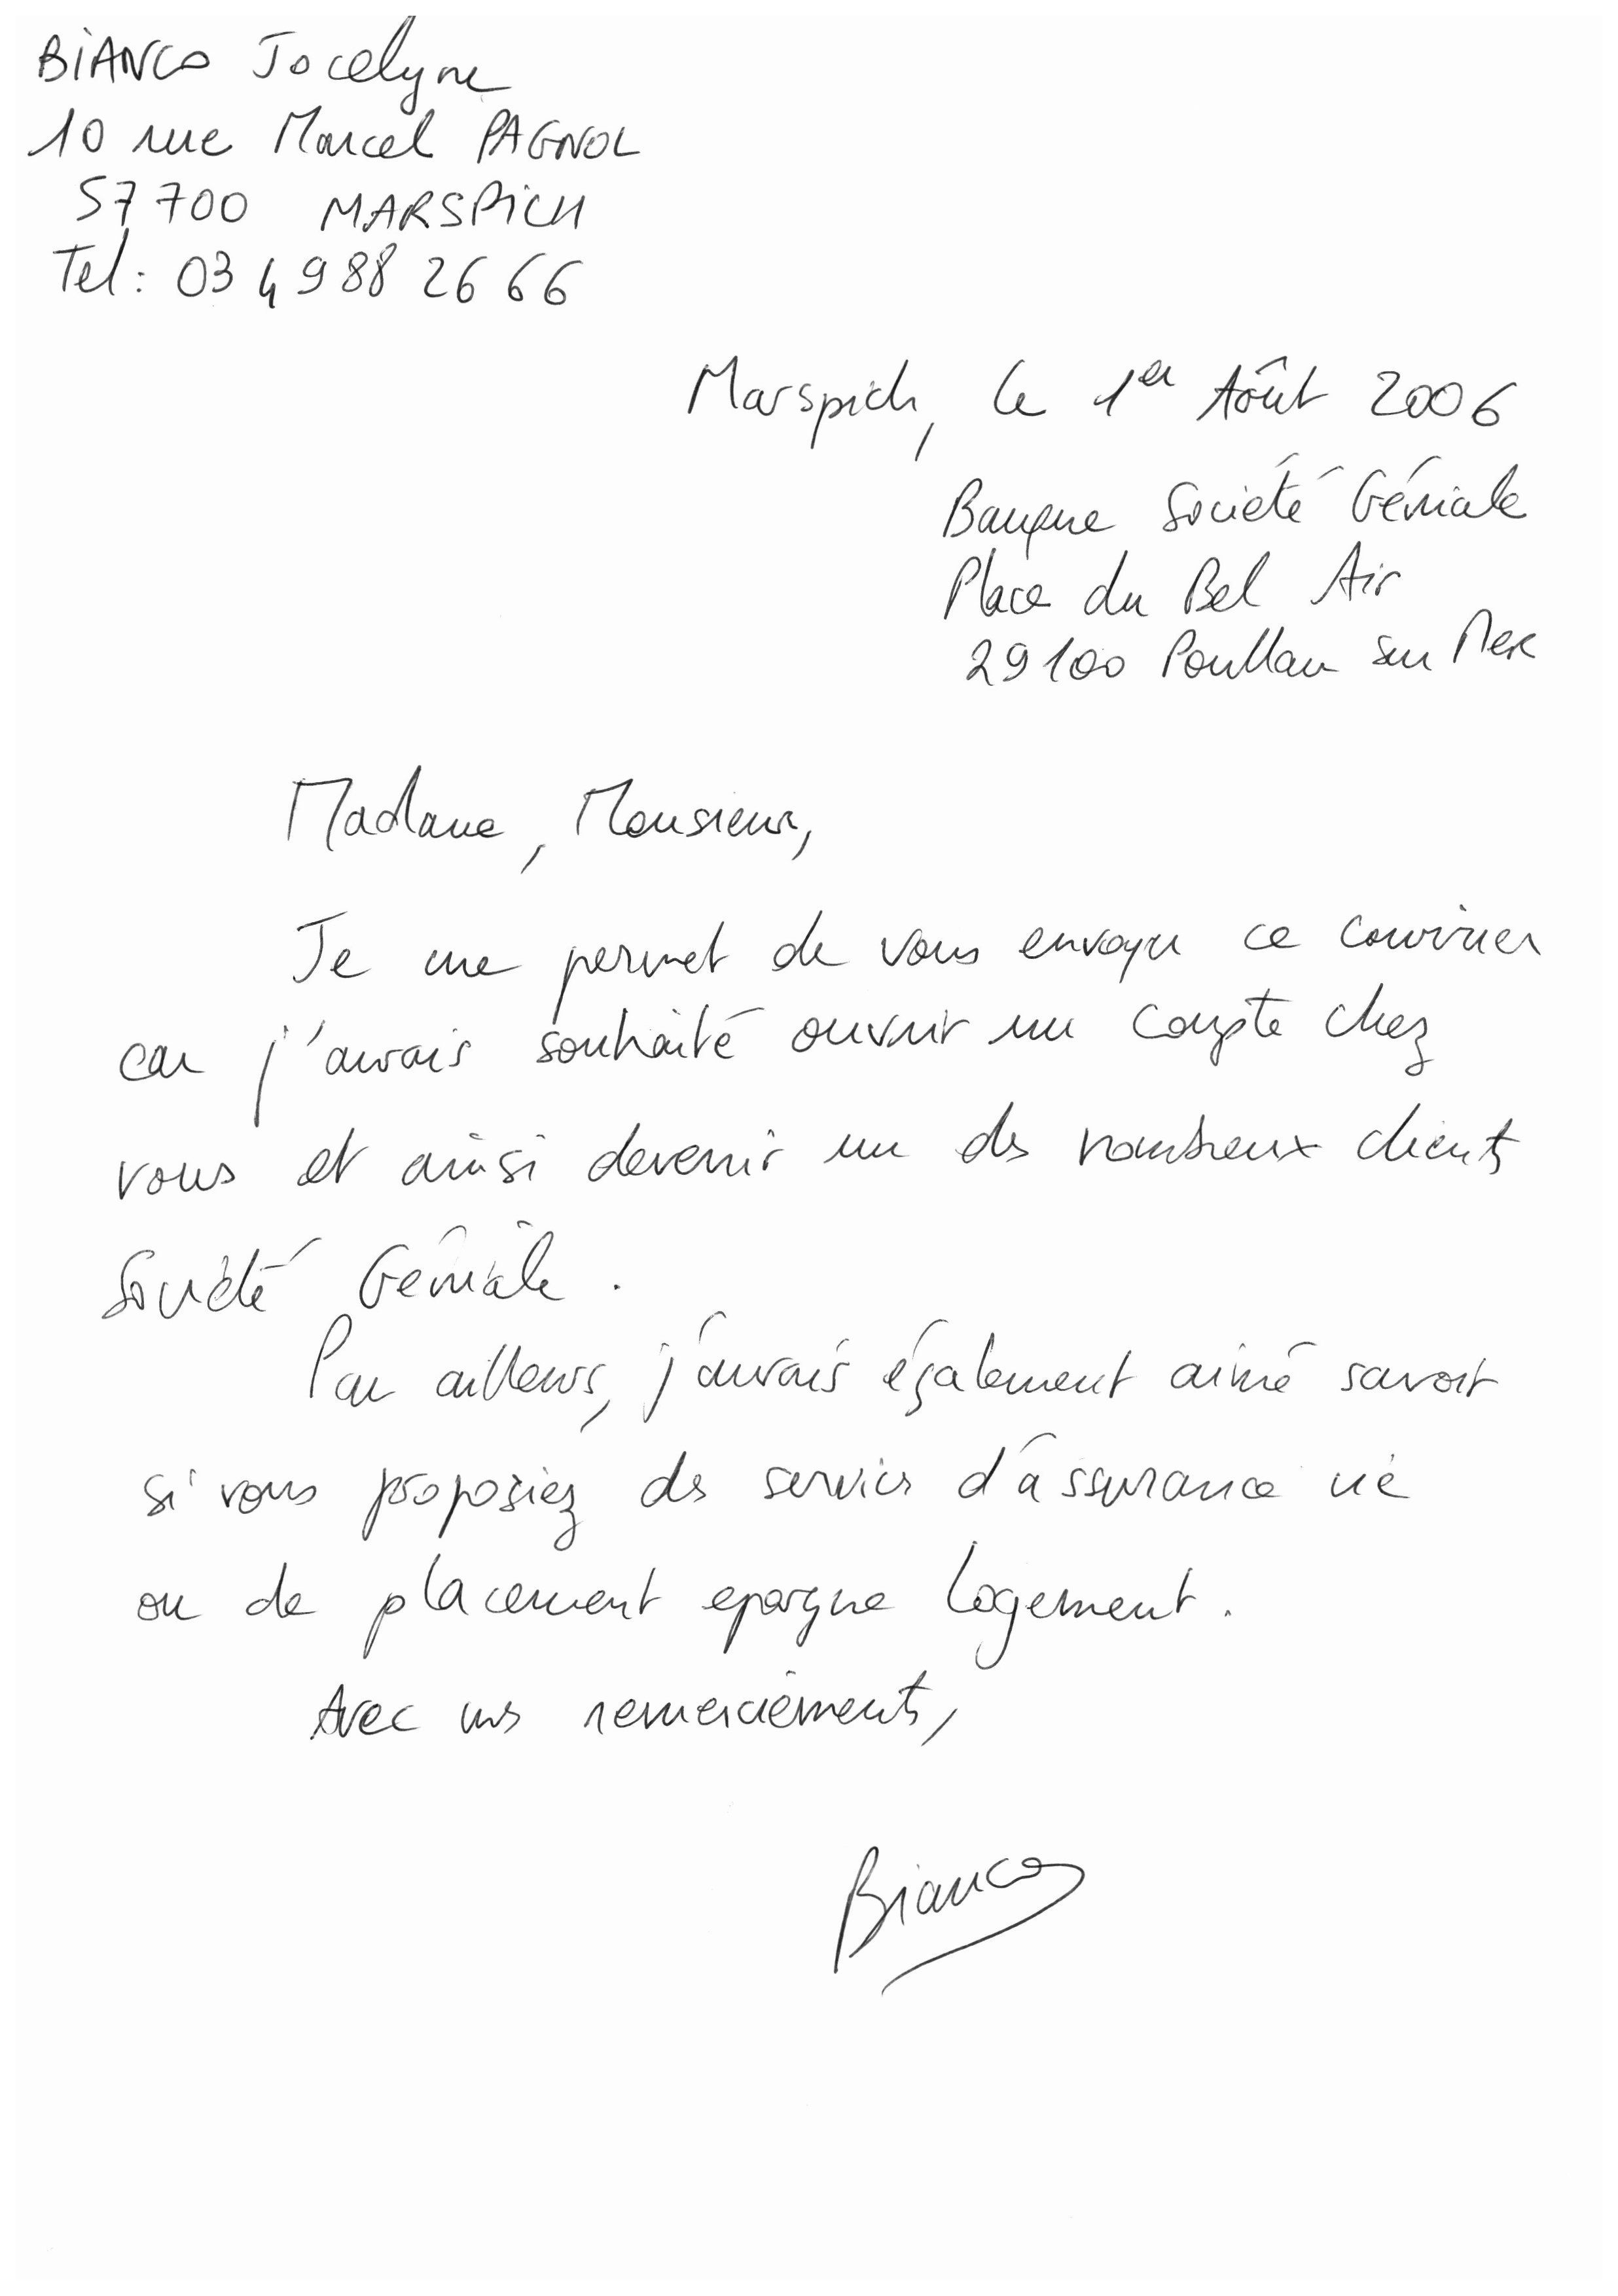 BIANCO Jocelyne
10 rue Marcel PAGNOL
57700 MARSPICH
Tel: 03 49 88 26 66
Marspich, le 1er Août 2006
Banque Société Géniale
Place du Bel Air
29100 Poullan sur Mer
Madame, Monsieur,
Je me permet de vous envoyer ce courrier
car j'aurais souhaité ouvrir un compte chez
vous et ainsi devenir un des nombreux clients
Société Géniale.
Par ailleurs, j'aurais également aimé savoir
si vous proposiez des services d'assurance vie
ou de placement epargne logement.
Avec mes remerciements,
Bianco